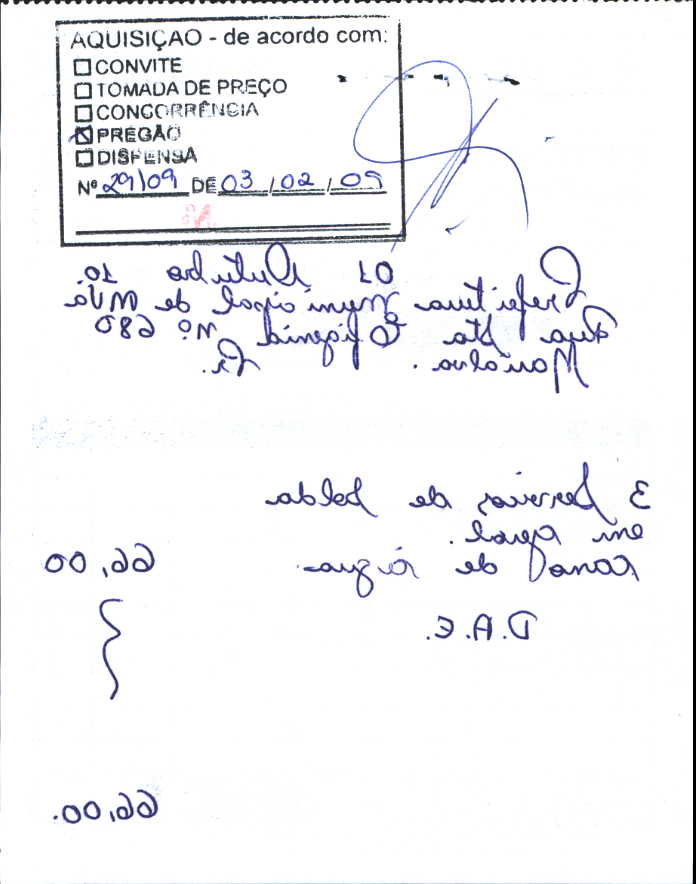 AQUISIÇÃO - de acordo com:
☐ CONVITE
☐ TOMADA DE PREÇO
☐ CONCORRÊNCIA
☒ PREGÃO
☐ DISPENSA
Nº 29/09 DE 03 / 02 / 09
01 Outubro 10
Prefeitura Municipal de MVá
Rua Sta Efigenia nº 680
Marialva. Pr.
3 Servios de Solda
em geral.
cano de água
D.A.E.
66,00
66,00.